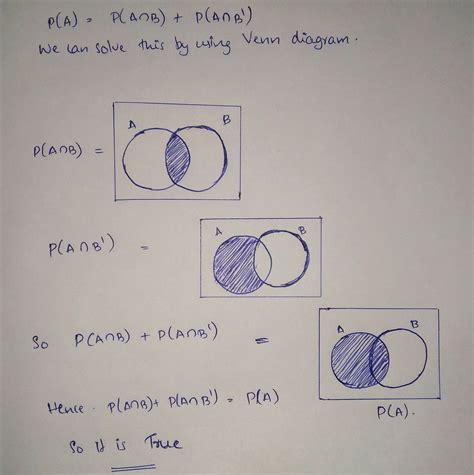 P(A) = P(A∩B) + P(A∩B')
We can solve this by using Venn diagram.
A B
P(A∩B) =
A B
P(A∩B') =
A B
So P(A∩B) + P(A∩B') =
Hence. P(A∩B)+ P(A∩B') = P(A)
P(A).
So it is True